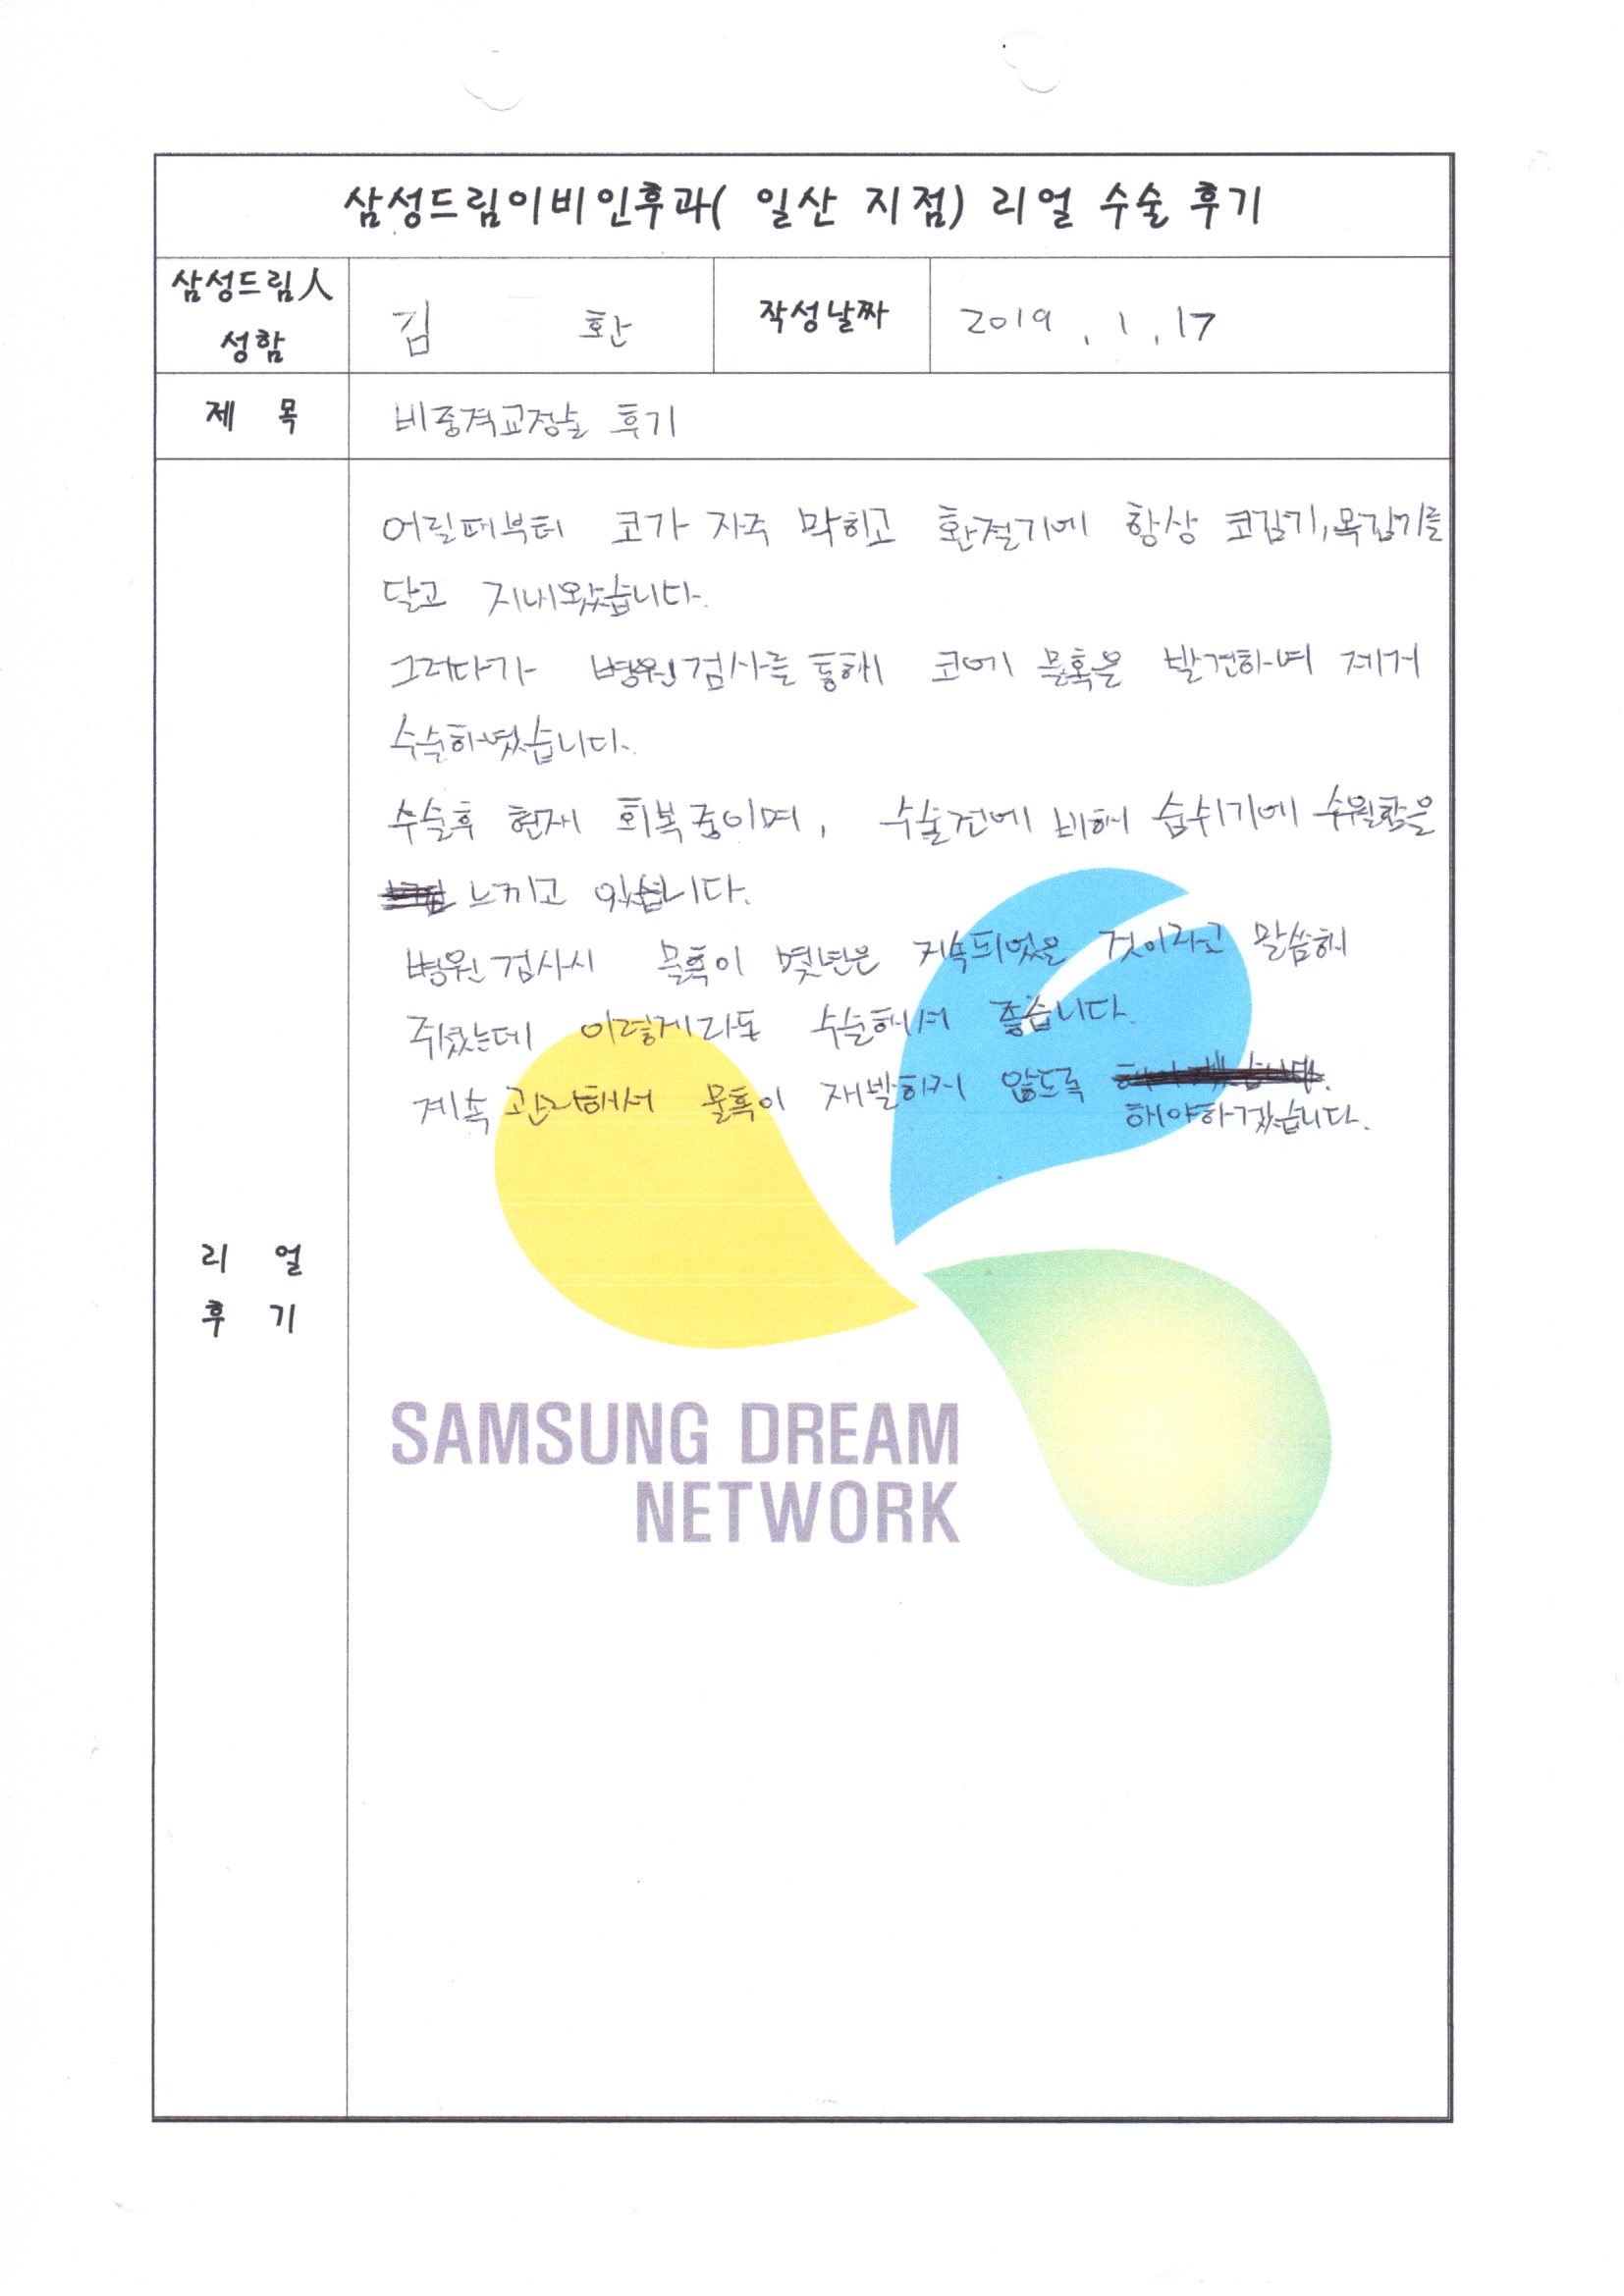 삼성드림이비인후과( 일산 지점) 리얼 수술 후기
삼성드림人
성함
김 환
작성날짜
2019 . 1 . 17
제 목
비중격교정술 후기
리 얼
후 기
어릴때부터 코가 자주 막히고 환절기에 항상 코감기, 목감기를
달고 지내왔습니다.
그러다가 병원검사를 통해 코에 물혹을 발견하여 제거
수술하였습니다.
수술후 현재 회복중이며, 수술전에 비해 숨쉬기에 수월함을
느끼고 있습니다.
병원검사시 물혹이 몇년은 지속되었을 것이라고 말씀해
주셨는데 이렇게라도 수술해서 좋습니다.
계속 관리해서 물혹이 재발하지 않도록
해야하겠습니다.
SAMSUNG DREAM
NETWORK